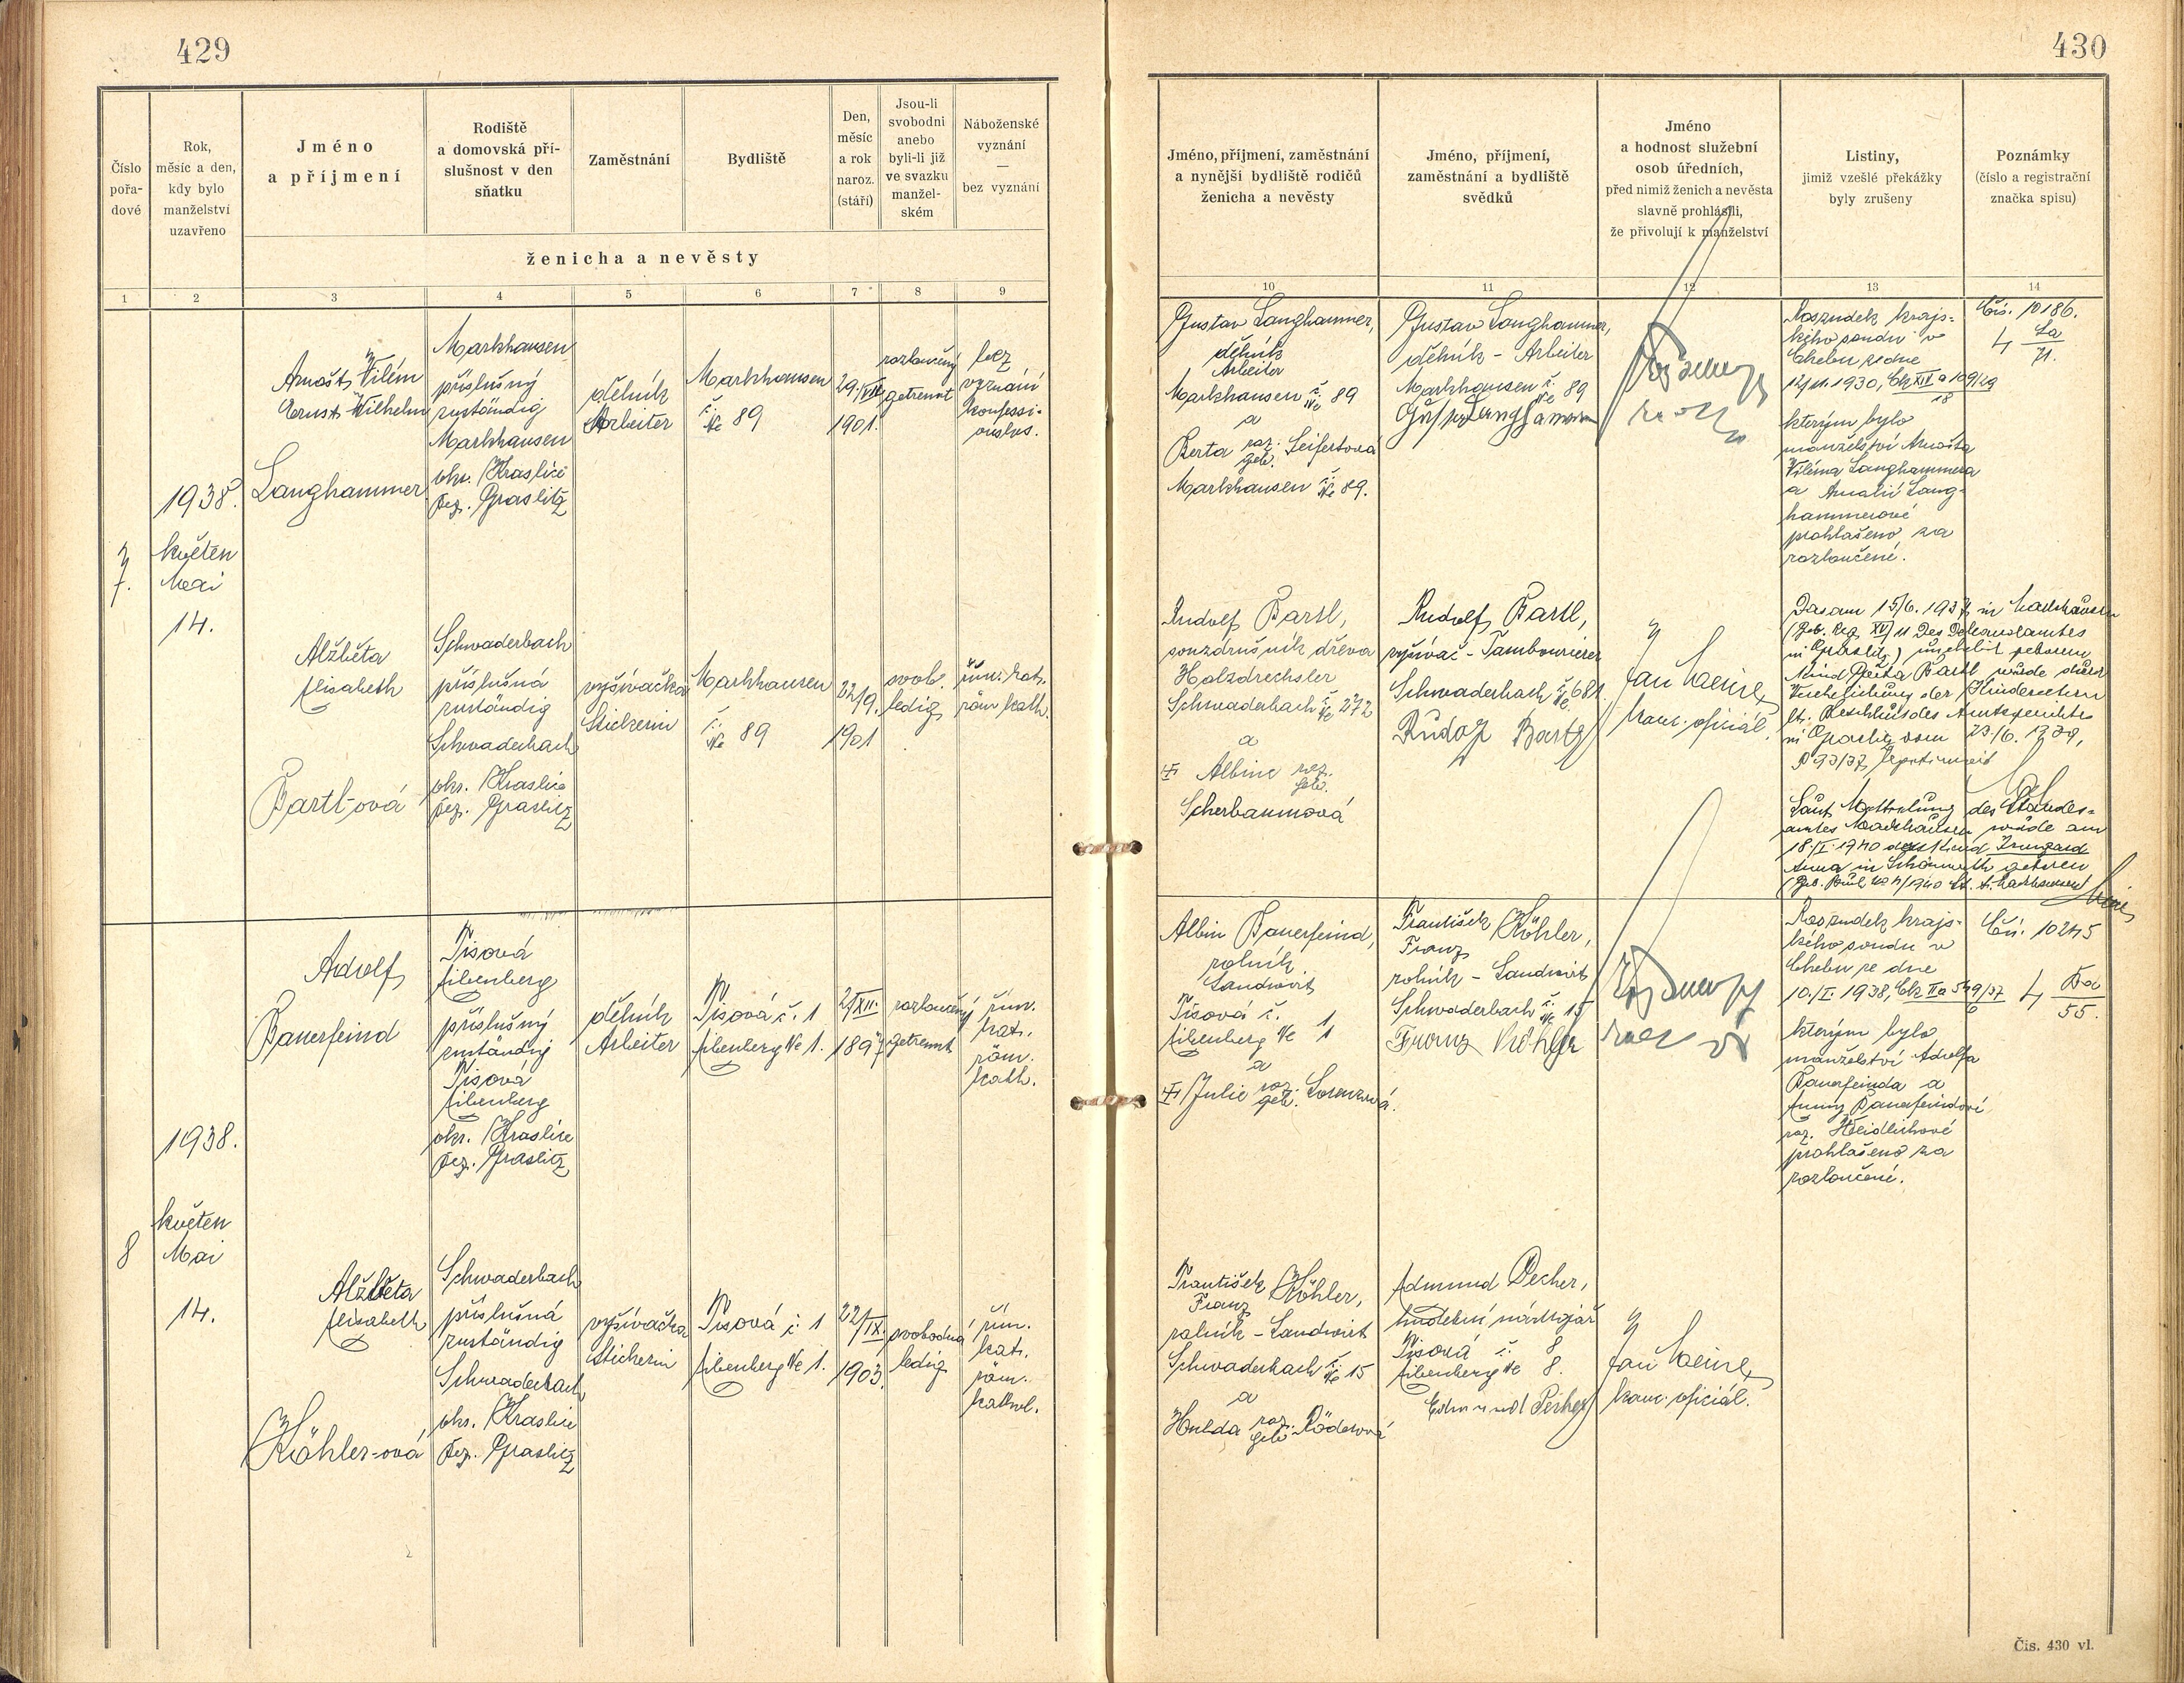 429
Číslo
pořa-
dové
Rok,
měsíc a den,
kdy bylo
manželství
uzavřeno
Jméno
a příjmení
Rodiště
a domovská pří-
slušnost v den
sňatku
Zaměstnání
Bydliště
Den,
měsíc
a rok
naroz.
(stáří)
Jsou-li
svobodni
anebo
byli-li již
ve svazku
manžel-
ském
Náboženské
vyznání
—
bez vyznání
ženicha a nevěsty
1 2 3 4 5 6 7 8 9
7.
1938.
květen
Mai
14.
Arnošt Vilém
Ernst Wilhelm
Langhammer
Markhausen
příslušný
zuständig
Markhausen
okr. Kraslice
Bez. Graslitz
dělník
Arbeiter
Markhausen
č. 89
№
29./VIII.
1901.
rozloučený
getrennt
bez
vyznání
konfessi-
onslos.
Alžběta
Elisabeth
Bartl-ová
Schwaderbach
příslušná
zuständig
Schwaderbach
okr. Kraslice
Bez. Graslitz
vyšívačka
Stickerin
Markhausen
č. 89
№
22/9.
1901
svob.
ledig
řím. kat.
röm. kath.
8
1938.
květen
Mai
14.
Adolf
Bauerfeind
Tisová
Eibenberg
příslušný
zuständig
Tisová
Eibenberg
okr. Kraslice
Bez. Graslitz
dělník
Arbeiter
Tisová č. 1
Eibenberg № 1.
2/XII.
1897
rozloučený
getrennt
řím.
kat.
röm.
kath.
Alžběta
Elisabeth
Köhler-ová
Schwaderbach
příslušná
zuständig
Schwaderbach
okr. Kraslice
Bez. Graslitz
vyšívačka
Stickerin
Tisová č. 1
Eibenberg № 1.
22/IX.
1903.
svobodná
ledig
řím.
kat.
röm.
kathol.
430
Jméno, příjmení, zaměstnání
a nynější bydliště rodičů
ženicha a nevěsty
Jméno, příjmení,
zaměstnání a bydliště
svědků
Jméno
a hodnost služební
osob úředních,
před nimiž ženich a nevěsta
slavně prohlásili,
že přivolují k manželství
Listiny,
jimiž vzešlé překážky
byly zrušeny
Poznámky
(číslo a registrační
značka spisu)
10 11 12 13 14
Gustav Langhammer,
dělník
Arbeiter
Markhausen č. № 89
a
Berta roz. geb. Seifertová
Markhausen č. № 89.
Gustav Langhammer,
dělník - Arbeiter
Markhausen č. № 89
Rozsudek krajs-
kého soudu v
Chebu ze dne
12/11. 1930, Ck XIV a 109/29
18
kterým bylo
manželství Arnošta
Viléma Langhammera
a Amalie Lang-
hammerové
prohlášeno za
rozloučené.
Čís. 10186.
La
71.
Rudolf Bartl,
soustružník dřeva
Holzdrechsler
Schwaderbach č. № 272
a
Albine roz. geb.
Scherbaumová
Rudolf Bartl,
vyšívač - Tambourierer
Schwaderbach č. № 681.
Rudolf Bartl
Jan Heine
kanc. oficiál.
Das am 15/6. 1937 in Markhausen
(Geb. Reg. XV/11 des Dekanalamtes
in Graslitz) unehelich geborene
Kind Berta Bartl wurde durch
Verehelichung der Kindeseltern
lt. Beschluss des Amtsgerichtes
in Graslitz vom 23/6. 1939,
P 93/37 legitimiert
Laut Mitteilung des Standes-
amtes Markhausen wurde am
18./I. 1940 das Kind Irmgard
Anna in geboren
Albin Bauerfeind,
rolník
Landwirt
Tisová č. 1
Eibenberg № 1
a
Julie roz. geb. Lorenzová.
František Köhler,
Franz
rolník - Landwirt
Schwaderbach č. № 15
Franz Köhler
Rozsudek krajs-
kého soudu v
Chebu ze dne
10./I. 1938, Ck IIa 549/37
6
kterým bylo
manželství Adolfa
Bauerfeinda a
Anny Bauerfeindové
roz. Heidlichové
prohlášeno za
rozloučené.
Čís. 10245
Ba
55.
František Köhler,
Franz
rolník - Landwirt
Schwaderbach č. № 15
a
Hulda roz. geb. Röderová
Edmund Pecher,
hudební nástrojář
Tisová č. 8
Eibenberg № 8.
Edmund Pecher
Jan Heine
kanc. oficiál.
Čis. 430 vl.